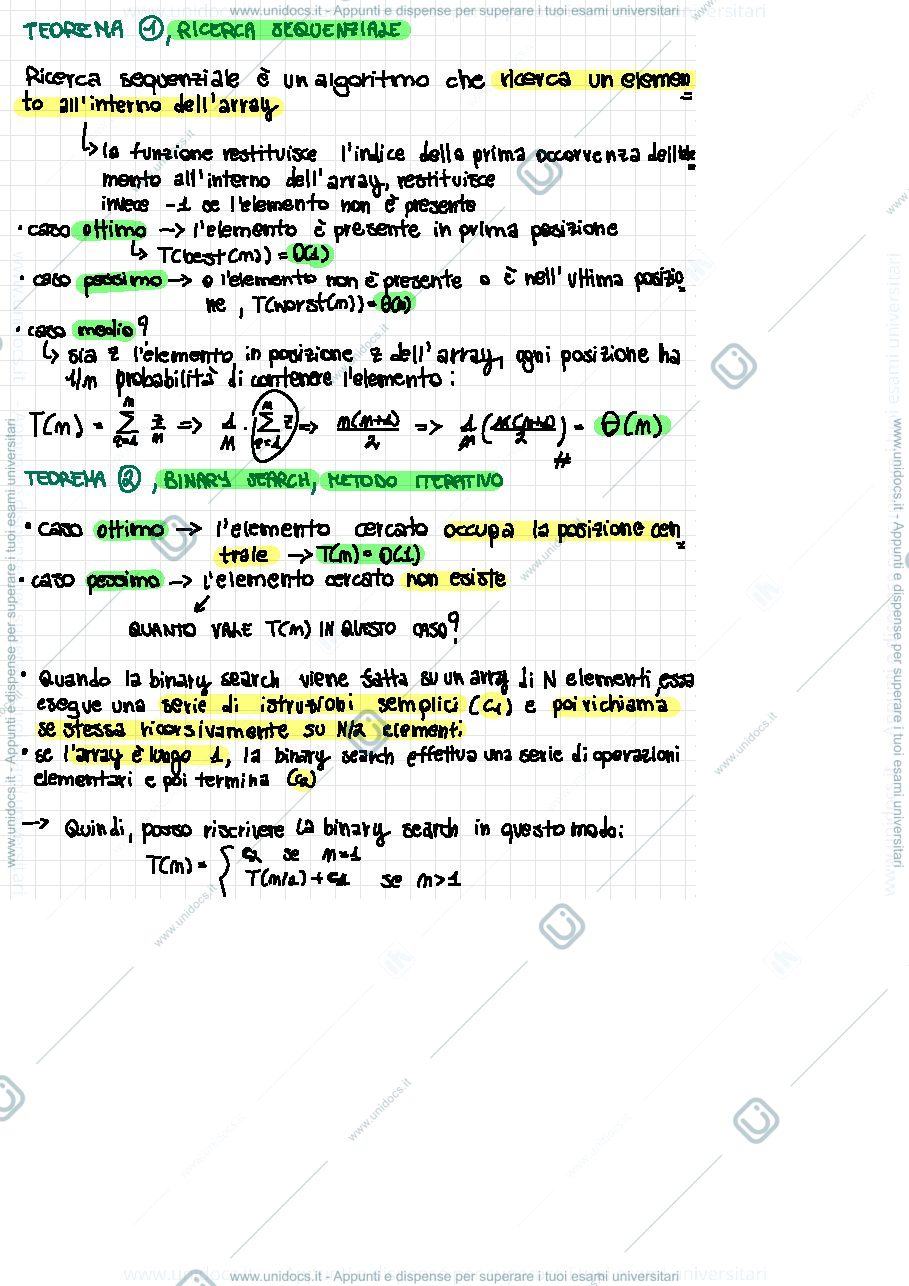 www.unidocs.it - Appunti e dispense per superare i tuoi esami universitari
TEOREMA ①, RICERCA SEQUENZIALE
Ricerca sequenziale è un algoritmo che ricerca un elemen
to all'interno dell'array
↳ la funzione restituisce l'indice della prima occorrenza dell'ele
mento all'interno dell'array, restituisce
invece -1 se l'elemento non è presente
• caso ottimo → l'elemento è presente in prima posizione
↳ T(best(m)) = O(1)
• caso pessimo → o l'elemento non è presente o è nell'ultima posizio
ne, T(worst(m)) = θ(m)
• caso medio?
↳ sia z l'elemento in posizione z dell'array, ogni posizione ha
1/m probabilità di contenere l'elemento:
T(m) = ∑ z=1 m z/m => 1/m · ∑ z=1 m z => m(m+1)/2 => 1/m (m(m+1)/2) = θ(m)
TEOREMA ②, BINARY SEARCH, METODO ITERATIVO
• caso ottimo → l'elemento cercato occupa la posizione cen
trale → T(m) = O(1)
• caso pessimo → l'elemento cercato non esiste
QUANTO VALE T(m) IN QUESTO CASO?
• Quando la binary search viene fatta su un array di N elementi, essa
esegue una serie di istruzioni semplici (C1) e poi richiama
se stessa ricorsivamente su N/2 elementi.
• se l'array è lungo 1, la binary search effettua una serie di operazioni
elementari e poi termina (C2)
→ Quindi, posso riscrivere la binary search in questo modo:
T(m) = { C2 se m=1
T(m/2) + C1 se m>1
www.unidocs.it - Appunti e dispense per superare i tuoi esami universitari